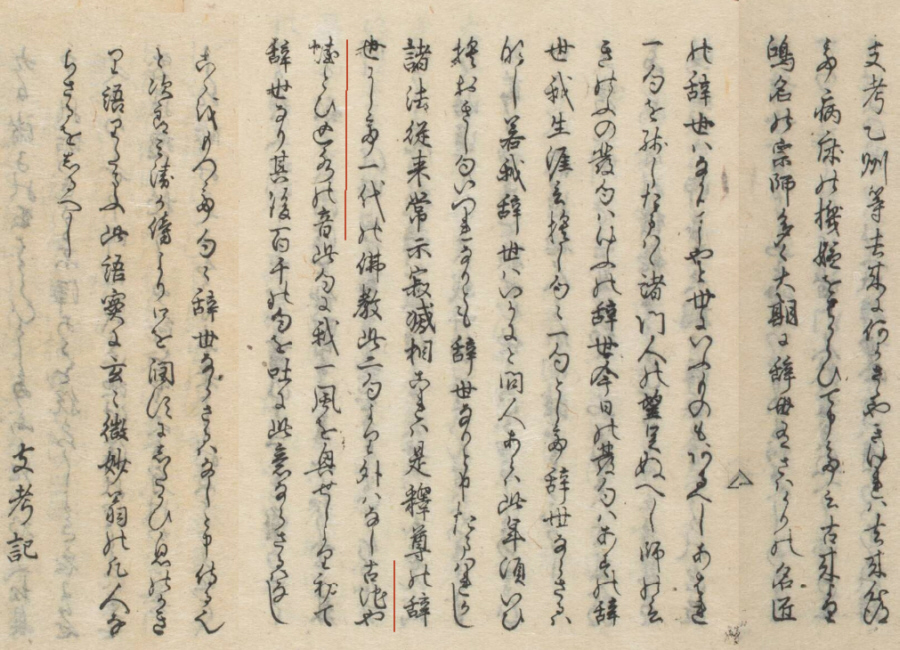 支考乙州等去来に何かさゝやきけれハ去来領
而病床の機嫌をはからひて申而云古来より
鴻名の宗師多く大期に辞世有さはかりの名匠
の辞世ハなかりしやと世にいふものもあるへしあはれ
一句を残したまハゝ諸門人の望足ぬへし師の云
きのふの発句ハけふの辞世今日の発句ハあすの辞
世我生涯云捨し句々一句として辞世ならさるハ
なし若我辞世ハいかにと問人あらハ此年頃いひ
捨おきし句いつれなりとも辞世なりと申たまハれかし
諸法従来常示寂滅相これハ是釈尊の辞
世にして一代の仏教此二句より外ハなし古池や
蛙とひ込水の音此句に我一風を興せしより初て
辞世なり其後百千の句を吐に此意ならさるハなし
こゝをもつて句々辞世ならさるハなしと申侍る也
と次郎兵衛か傍より口を潤すにしたかひ息のかき
り語りたまふ此語実に玄々微妙翁の凡人な
らさるをしるへし
支考記